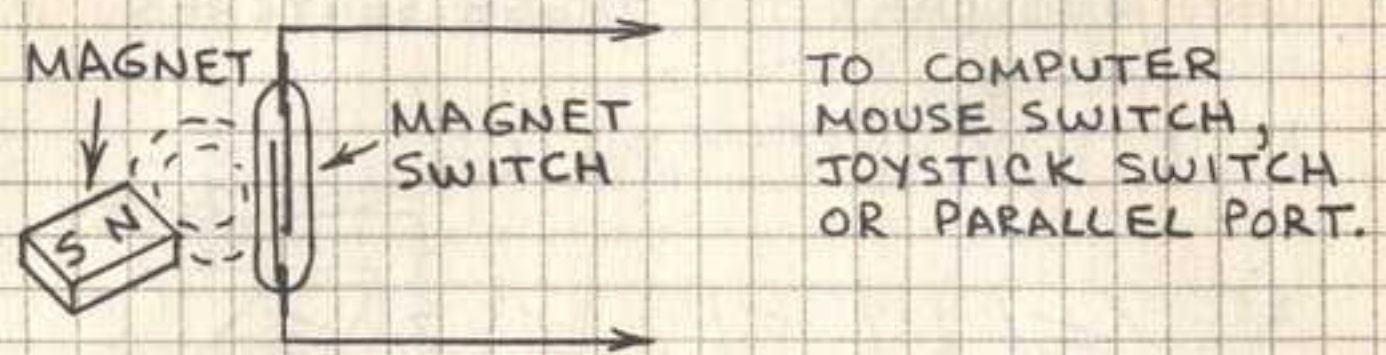 MAGNET
S N
MAGNET
SWITCH
TO COMPUTER
MOUSE SWITCH,
JOYSTICK SWITCH
OR PARALLEL PORT.